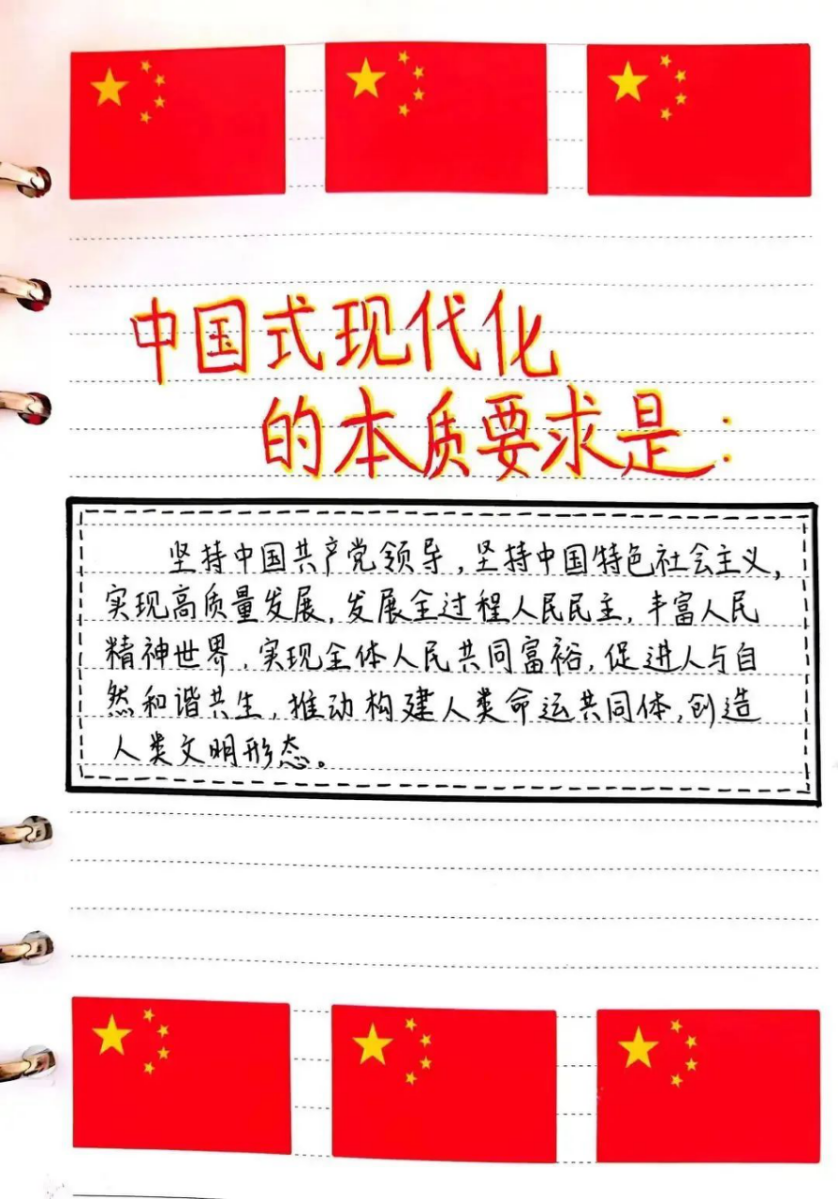 中国式现代化
的本质要求是:
坚持中国共产党领导,坚持中国特色社会主义,
实现高质量发展,发展全过程人民民主,丰富人民
精神世界,实现全体人民共同富裕,促进人与自
然和谐共生,推动构建人类命运共同体,创造
人类文明形态。